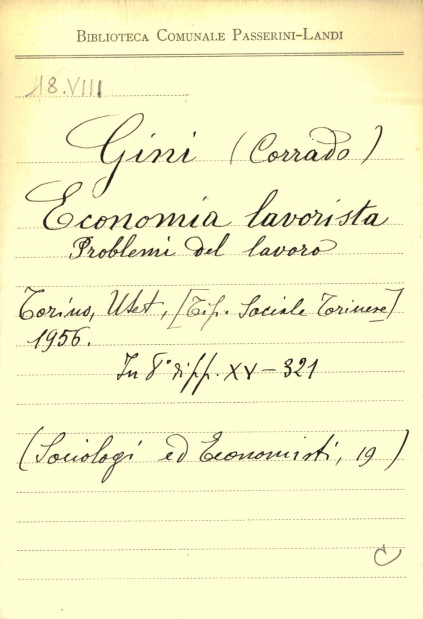 BIBLIOTECA COMUNALE PASSERINI-LANDI
18.VIII
Gini (Corrado)
Economia lavorista
Problemi del lavoro
Torino, Utet, [Tip. Sociale Torinese]
1956.
In 8° di pp. XV-321
(Sociologi ed Economisti, 19)
C